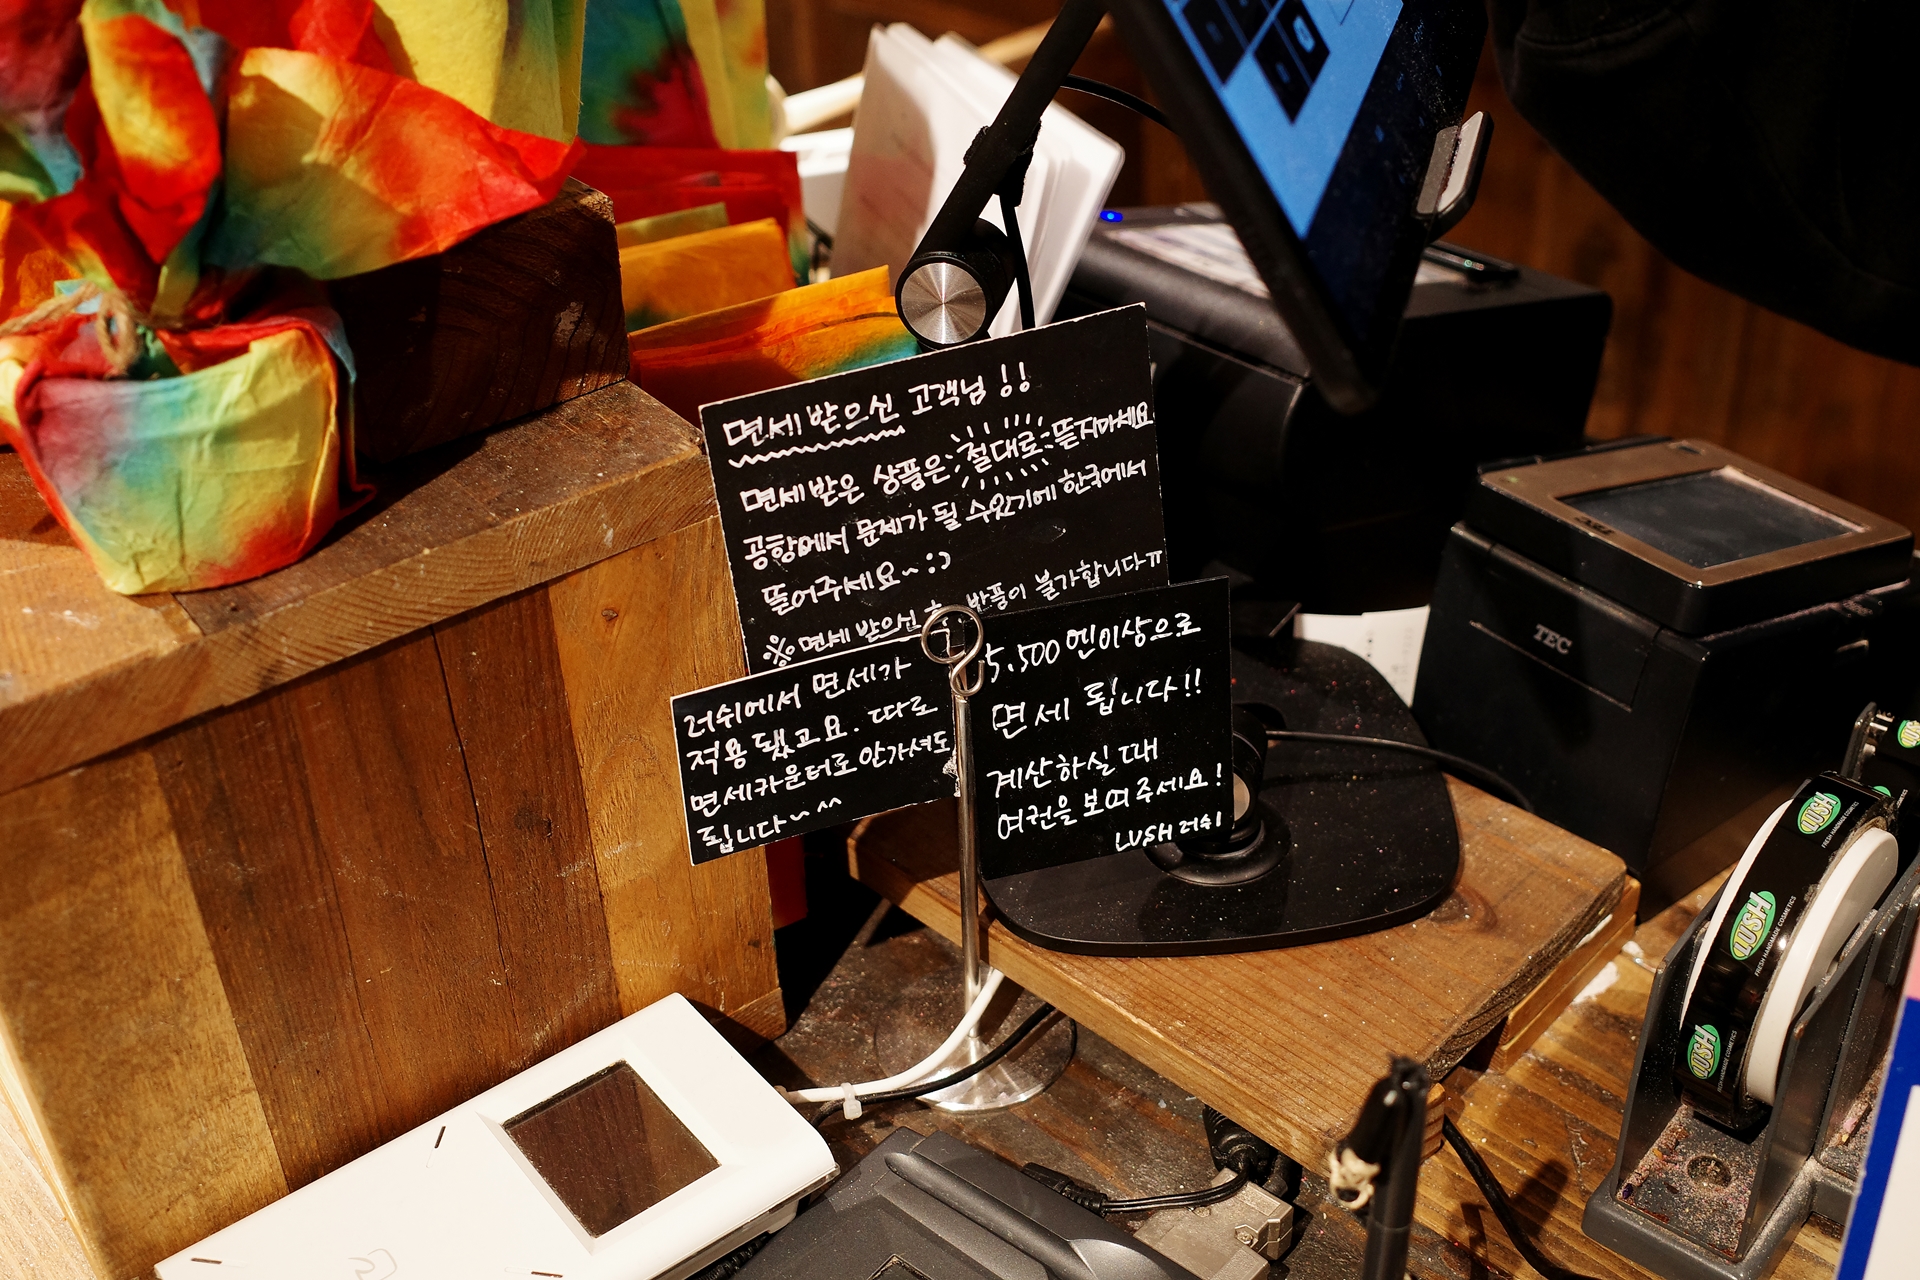 면세 받으신 고객님!!
면세받은 상품은 절대로 뜯지마세요
공항에서 문제가 될 수있기에 한국에서
뜯어주세요~:)
※면세 받으신 후 반품이 불가합니다ㅠ
러쉬에서 면세가
적용 됐고요. 따로
면세카운터로 안가셔도
됩니다~^^
5.500엔이상으로
면세 됩니다!!
계산하실때
여권을 보여주세요!
LUSH 러쉬
TEC
LUSH
FRESH HANDMADE COSMETICS
LUSH
FRESH HANDMADE COSMETICS
LUSH
FRESH HANDMADE COSMETICS